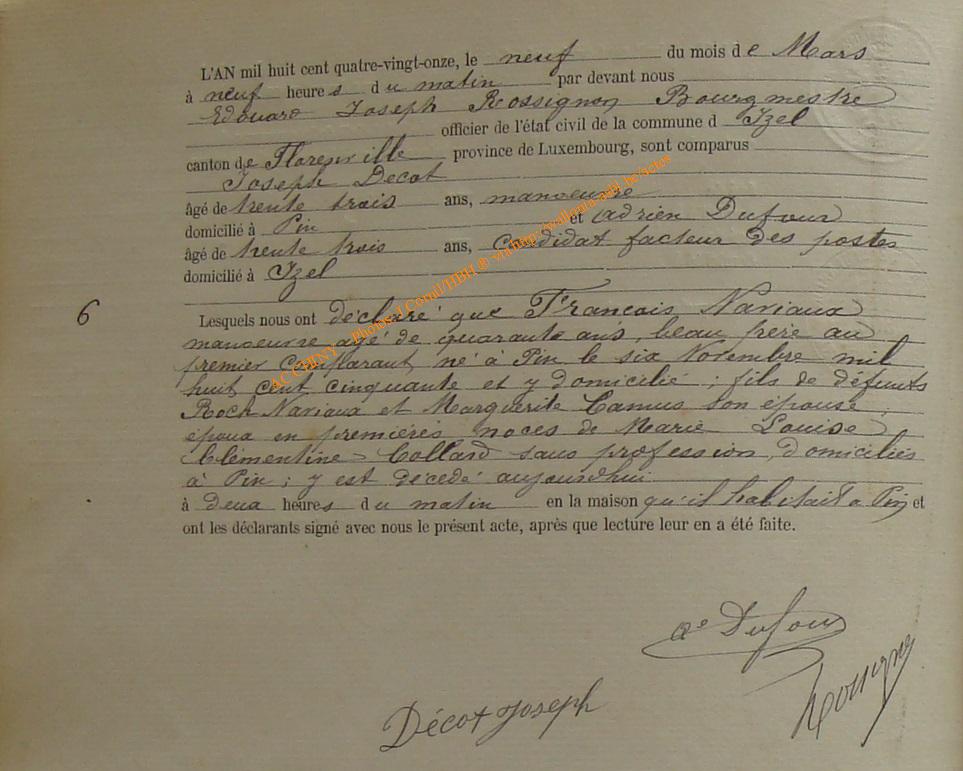 L'AN mil huit cent quatre-vingt-onze, le neuf du mois de Mars
à neuf heures du matin par devant nous
Edouard Joseph Rossignon Bourgmestre
officier de l'état civil de la commune d Izel
canton de Florenville province de Luxembourg, sont comparus
Joseph Decot
âgé de trente trois ans, manoeuvre
domicilié à Pin et Adrien Dufour
âgé de trente trois ans, Candidat facteur des postes
domicilié à Izel
6
Lesquels nous ont déclaré que Francois Nariaux
manoeuvre agé de quarante ans, beau frère au
premier comparant né à Pin le six Novembre mil
huit cent cinquante et y domicilié ; fils de défunts
Roch Nariaux et Marguerite Camus son épouse ;
époux en premières noces de Marie Louise
Clémentine Collard sans profession, domiciliés
à Pin ; y est décedé aujourdhui
à deux heures du matin en la maison qu'il habitait a Pin et
ont les déclarants signé avec nous le présent acte, après que lecture leur en a été faite.
Dufour
Rossigno
Décot Joseph
AC CHINY - Photos J.Cornil/HBH ® via http://wallonia-asbl.be/actes